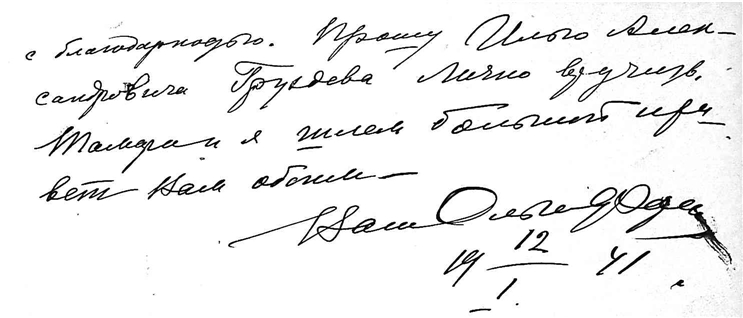 с благодарностью. Прошу Илью Алек-
сандровича Груздева лично вручить.
Тамара и я шлем большой при-
вет Вам обоим —
Ваш Ольга Форш
19 12/1 41 г.